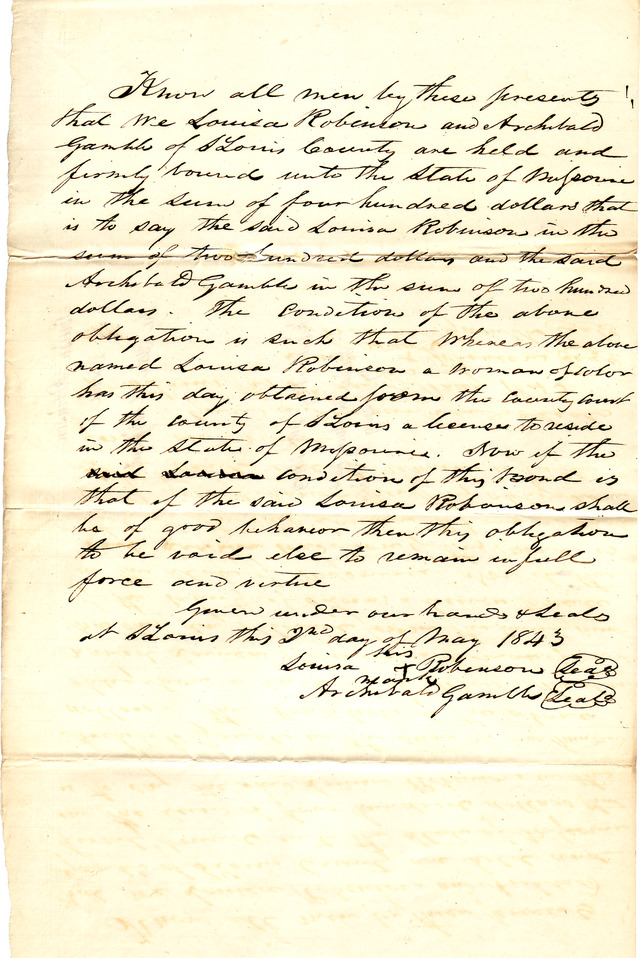 Know all men by these presents
that We Louisa Robinson and Archibald
Gamble of St Louis County are held and
firmly bound unto the State of Missouri
in the sum of four hundred dollars that
is to say the said Louisa Robinson in the
sum of two hundred dollars and the said
Archibald Gamble in the sum of two hundred
dollars. The Condition of the above
obligation is such that Whereas the above
named Louisa Robinson a woman of color
has this day obtained from the County Court
of the County of St Louis a license to reside
in the State of Missouri. Now if the
said Louisa condition of this bond is
that if the said Louisa Robinson shall
be of good behavior then this obligation
to be void else to remain in full
force and virtue
Given under our hands & Seals
at St Louis this 2nd day of May 1843
his
Louisa + Robinson (Seal)
mark
Archibald Gamble (Seal)